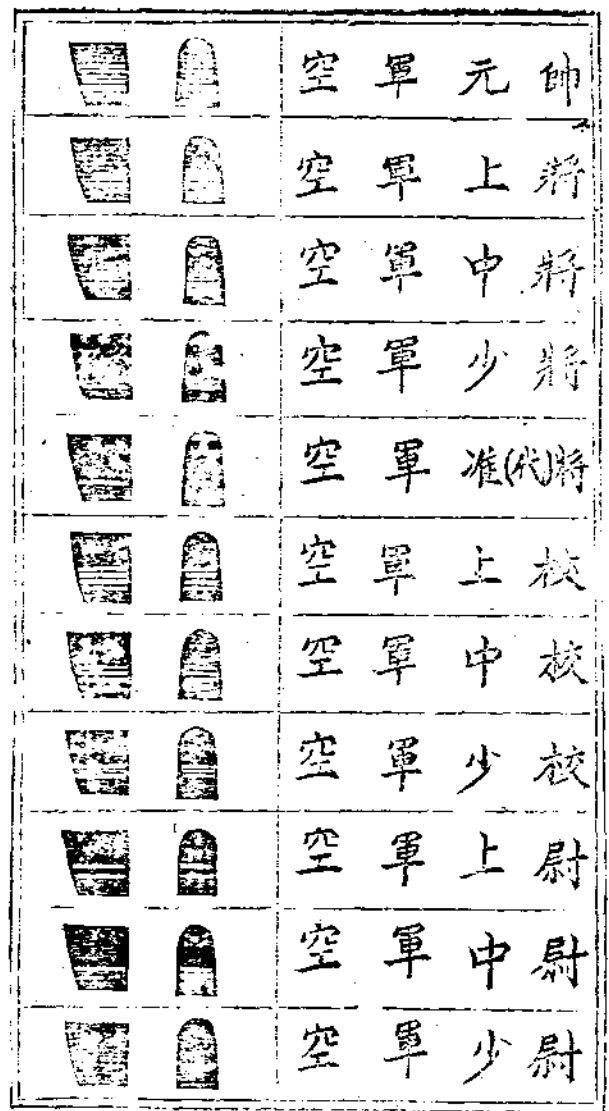 空軍元帥
空軍上將
空軍中將
空軍少將
空軍准(代)將
空軍上校
空軍中校
空軍少校
空軍上尉
空軍中尉
空軍少尉